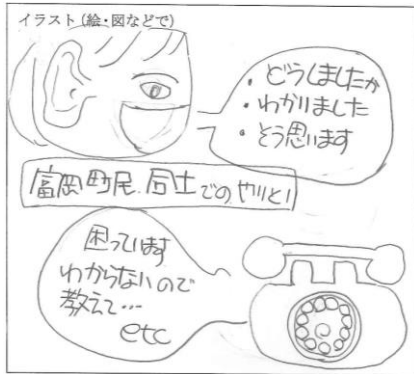 イラスト(絵・図などで)
・どうしましたか
・わかりました
・そう思います
富岡町民同士でのやりとり
困っています
わからないので
教えて…
etc